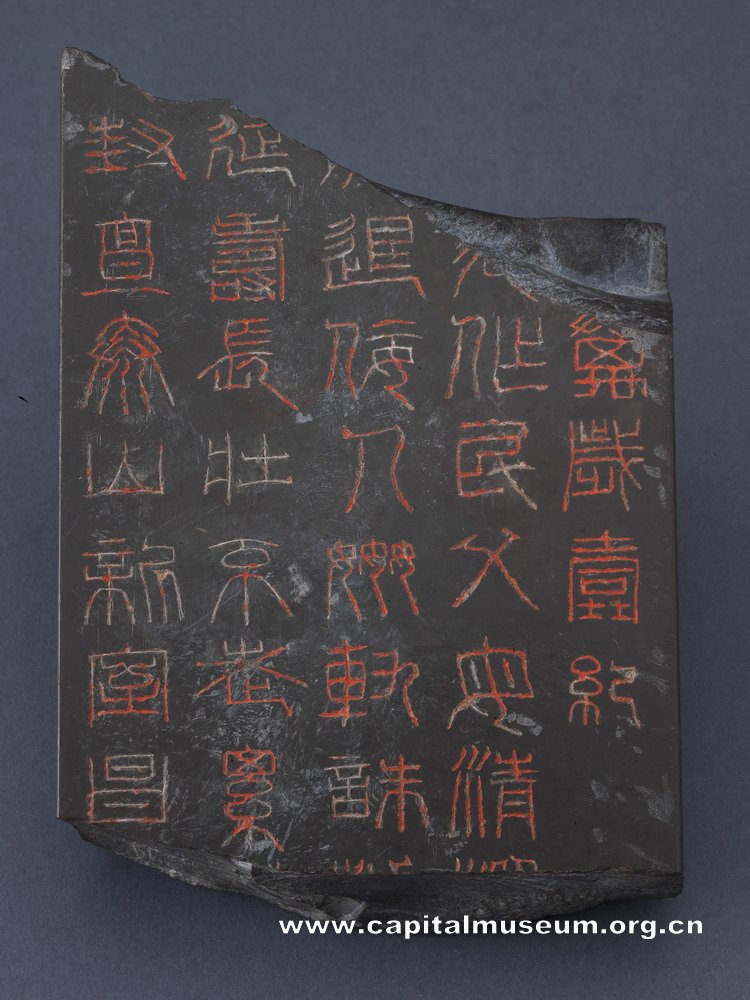 萬歲壹紀
作民父母清
退佞人姦軌誅
延壽長壯不老累
封亶泰山新室昌
www.capitalmuseum.org.cn